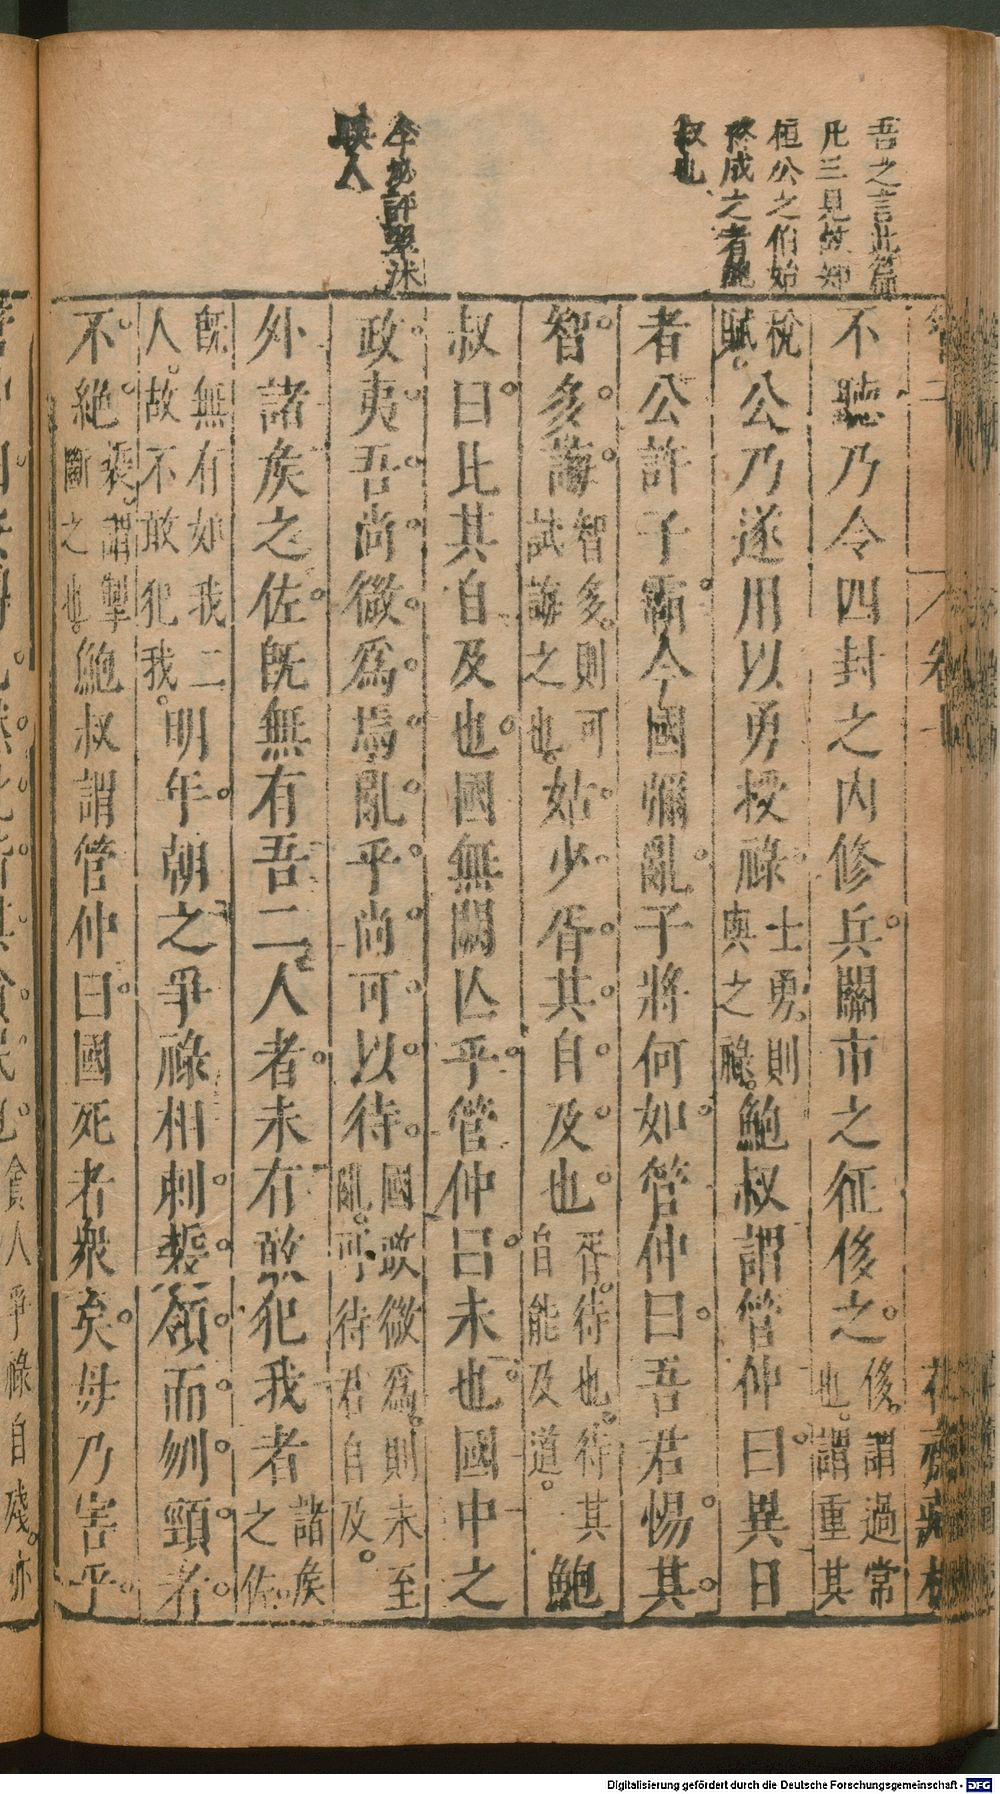 吾之言此篇
凡三見故知
桓公之伯始
終成之者鮑
叔也
不聽乃令四封之内修兵關市之征侈之侈謂過常也謂重其
稅賦公乃遂用以勇授祿士勇則與之祿鮑叔謂管仲曰異日
者公許子霸今國彌亂子將何如管仲曰吾君惕其
智多誨智多則可試誨之也姑少胥其自及也胥待也待其自能及道鮑
叔曰比其自及也國無闕亡乎管仲曰未也國中之
政夷吾尚微爲焉亂乎尚可以待國政微爲則未至亂可待君自及
外諸矦之佐旣無有吾二人者未有敢犯我者諸矦之佐
旣無有如我二人故不敢犯我明年朝之爭祿相刺裚領而刎頸者
不絕裚謂掣斷之也鮑叔謂管仲曰國死者衆矣毋乃害乎
貪人爭祿自殘亦
Digitalisierung gefördert durch die Deutsche Forschungsgemeinschaft - DFG